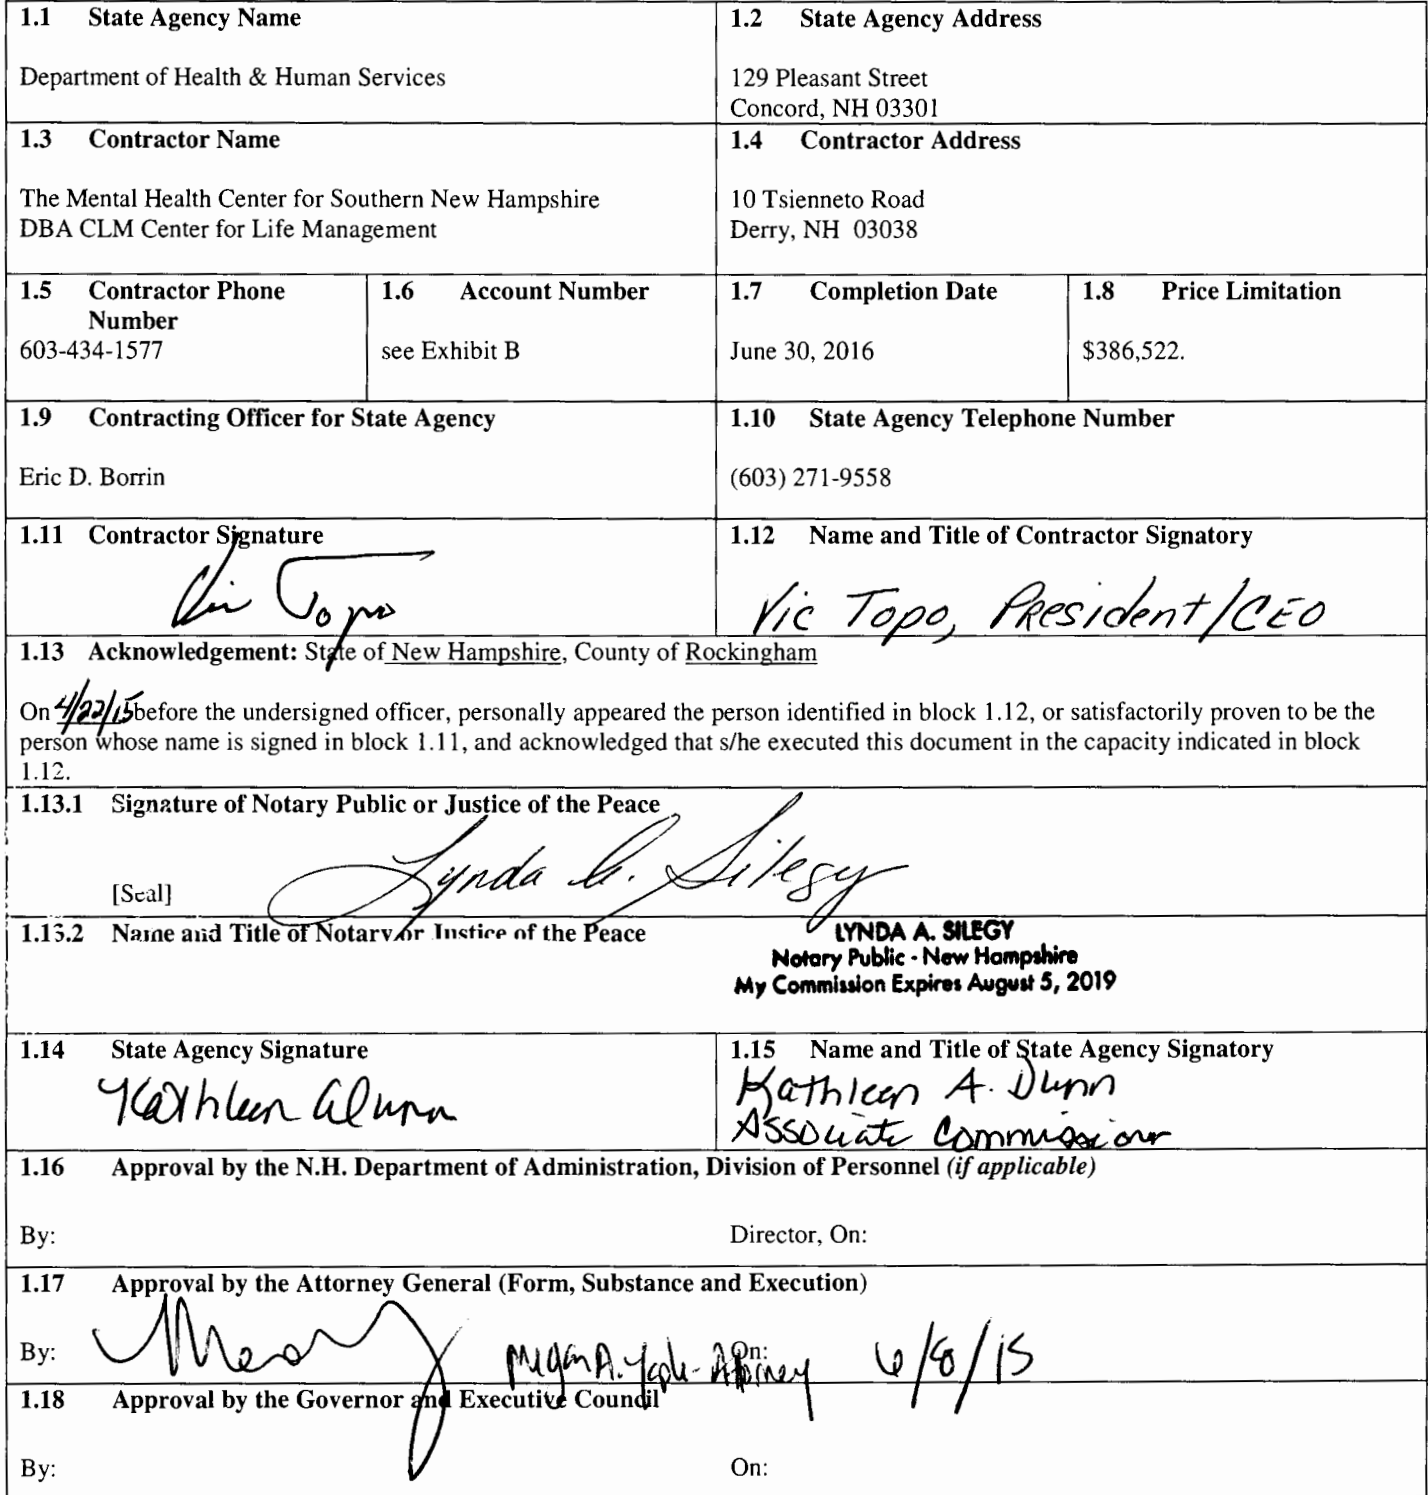 1.1 State Agency Name
Department of Health & Human Services
1.2 State Agency Address
129 Pleasant Street
Concord, NH 03301
1.3 Contractor Name
The Mental Health Center for Southern New Hampshire
DBA CLM Center for Life Management
1.4 Contractor Address
10 Tsienneto Road
Derry, NH 03038
1.5 Contractor Phone
Number
603-434-1577
1.6 Account Number
see Exhibit B
1.7 Completion Date
June 30, 2016
1.8 Price Limitation
$386,522.
1.9 Contracting Officer for State Agency
Eric D. Borrin
1.10 State Agency Telephone Number
(603) 271-9558
1.11 Contractor Signature
Vic Topo
1.12 Name and Title of Contractor Signatory
Vic Topo, President/CEO
1.13 Acknowledgement: State of New Hampshire, County of Rockingham
On 4/22/15 before the undersigned officer, personally appeared the person identified in block 1.12, or satisfactorily proven to be the
person whose name is signed in block 1.11, and acknowledged that s/he executed this document in the capacity indicated in block
1.12.
1.13.1 Signature of Notary Public or Justice of the Peace
Lynda A. Silegy
[Seal]
1.13.2 Name and Title of Notary or Justice of the Peace
LYNDA A. SILEGY
Notary Public - New Hampshire
My Commission Expires August 5, 2019
1.14 State Agency Signature
Kathleen A Dunn
1.15 Name and Title of State Agency Signatory
Kathleen A. Dunn
Associate Commissioner
1.16 Approval by the N.H. Department of Administration, Division of Personnel (if applicable)
By:
Director, On:
1.17 Approval by the Attorney General (Form, Substance and Execution)
By: Megan A. - Attorney On: 6/8/15
1.18 Approval by the Governor and Executive Council
By:
On: